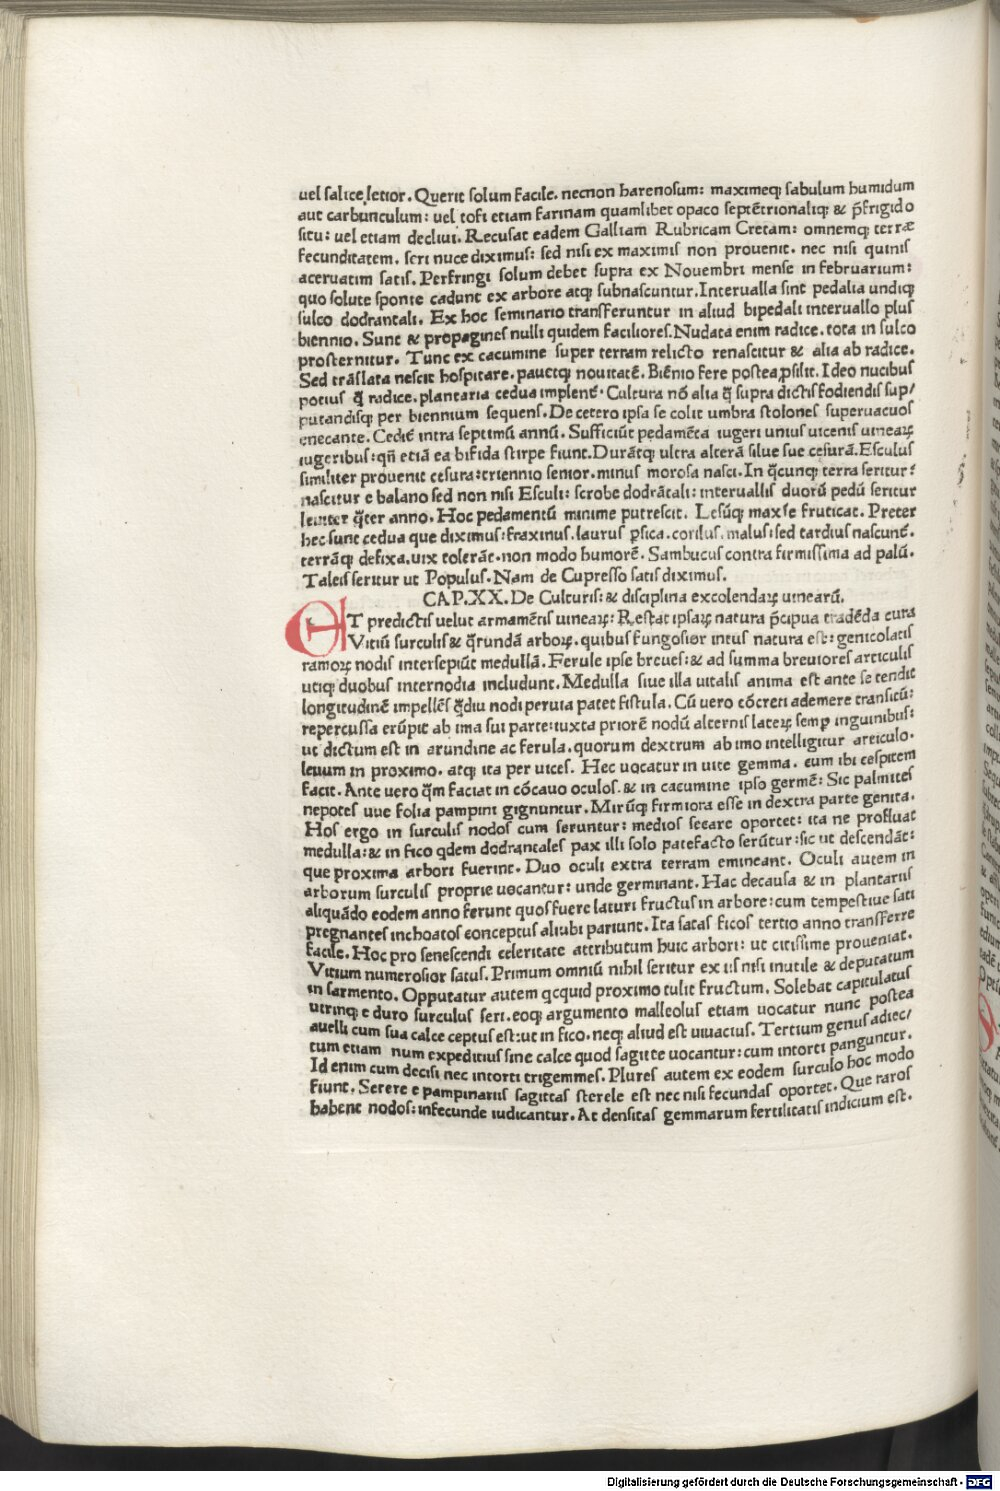 uel salice letior. Querit solum facile. necnon harenosum: maximeqꝫ sabulum humidum
aut carbunculum: uel tofi etiam farinam quamlibet opaco septẽtrionaliqꝫ & p̃frigido
situ: uel etiam decliui. Recusat eadem Galliam Rubricam Cretam: omnemqꝫ terræ
fecunditatem. seri nuce diximus: sed nisi ex maximis non prouenit. nec nisi quinis
aceruatim satis. Perfringi solum debet supra ex Nouembri mense in februarium:
quo solute sponte cadunt ex arbore atqꝫ subnascuntur. Interualla sint pedalia undiqꝫ
sulco dodrantali. Ex hoc seminario transferuntur in aliud bipedali interuallo plus
biennio. Sunt & propagines nulli quidem faciliores. Nudata enim radice. tota in sulco
prosternitur. Tunc ex cacumine super terram relicto renascitur & alia ab radice.
Sed trãslata nescit hospitare. pauetqꝫ nouitatẽ. Biẽnio fere postea ꝓsilit. Ideo nucibus
potius q̃ radice. plantaria cedua implent᷑. Cultura nõ alia q̃ supra dictis fodiendis sup/
putandisqꝫ per biennium sequens. De cetero ipsa se colit umbra stolones superuacuos
enecante. Cedit᷑ intra septimũ annũ. Sufficiũt pedamẽta iugeri unius uicenis uinearꝝ
iugeribus: qñ etiã ea bifida stirpe fiunt. Durãtqꝫ ultra alterã silue sue cesurã. Esculus
similiter prouenit cesura: triennio senior. minus morosa nasci. In q̃cunqꝫ terra seritur:
nascitur e balano sed non nisi Esculi: scrobe dodrãtali: interuallis duorũ pedũ seritur
leuiter q̃ter anno. Hoc pedamentũ minime putrescit. Cesũqꝫ maxĩe fruticat. Preter
hec sunt cedua que diximus: fraxinus. laurus ꝑsica. corilus. malus: sed tardius nascunt᷑.
terrãqꝫ defixa. uix tolerãt. non modo humorẽ. Sambucus contra firmissima ad palũ.
Taleis seritur ut Populus. Nam de Cupresso satis diximus.
CAP. XX. De Culturis: & disciplina excolendarꝝ uinearũ.
ET predictis uelut armamẽtis uinearꝝ: Restat ipsarꝝ natura p̃cipua tradẽda cura
Vitiũ surculis & q̃rundã arborꝝ. quibus fungosior intus natura est: genicolatis
ramorꝝ nodis intersepiũt medullã. Ferule ipse breues: & ad summa breuiores articulis
utiqꝫ duobus internodia includunt. Medulla siue illa uitalis anima est ante se tendit
longitudinẽ impellẽs q̃diu nodi peruia patet fistula. Cũ uero cõcreti ademere transitũ:
repercussa erũpit ab ima sui parte: iuxta priorẽ nodũ alternis laterꝝ semꝑ inguinibus:
ut dictum est in arundine ac ferula. quorum dextrum ab imo intelligitur articulo.
leuum in proximo. atqꝫ ita per uices. Hec uocatur in uite gemma. cum ibi cespitem
facit. Ante uero q̃m faciat in cõcauo oculos. & in cacumine ipso germẽ: Sic palmites
nepotes uue folia pampini gignuntur. Mirũqꝫ firmiora esse in dextra parte genita.
Hos ergo in surculis nodos cum seruntur: medios secare oportet: ita ne profluat
medulla: & in fico qdem dodrantales pax illi solo patefacto serũtur: sic ut descendãt:
que proxima arbori fuerint. Duo oculi extra terram emineant. Oculi autem in
arborum surculis proprie uocantur: unde germinant. Hac decausa & in plantariis
aliquãdo eodem anno ferunt quos fuere laturi fructus in arbore: cum tempestiue sati
pregnantes inchoatos conceptus aliubi pariunt. Ita satas ficos tertio anno transferre
facile. Hoc pro senescendi celeritate attributum huic arbori: ut citissime proueniat.
Vitium numerosior satus. Primum omniũ nihil seritur ex iis nisi inutile & deputatum
in sarmento. Opputatur autem qcquid proximo tulit fructum. Solebat capitulatus
utrinqꝫ e duro surculus seri. eoqꝫ argumento malleolus etiam uocatur nunc postea
auelli cum sua calce ceptus est: ut in fico. neqꝫ aliud est uiuacius. Tertium genus adiec/
tum etiam num expeditius sine calce quod sagitte uocantur: cum intorti panguntur.
Id enim cum decisi nec intorti trigemmes. Plures autem ex eodem surculo hoc modo
fiunt. Serere e pampinariis sagittas sterele est nec nisi fecundas oportet. Que raros
habent nodos: infecunde iudicantur. At densitas gemmarum fertilitatis indicium est.
Digitalisierung gefördert durch die Deutsche Forschungsgemeinschaft - DFG